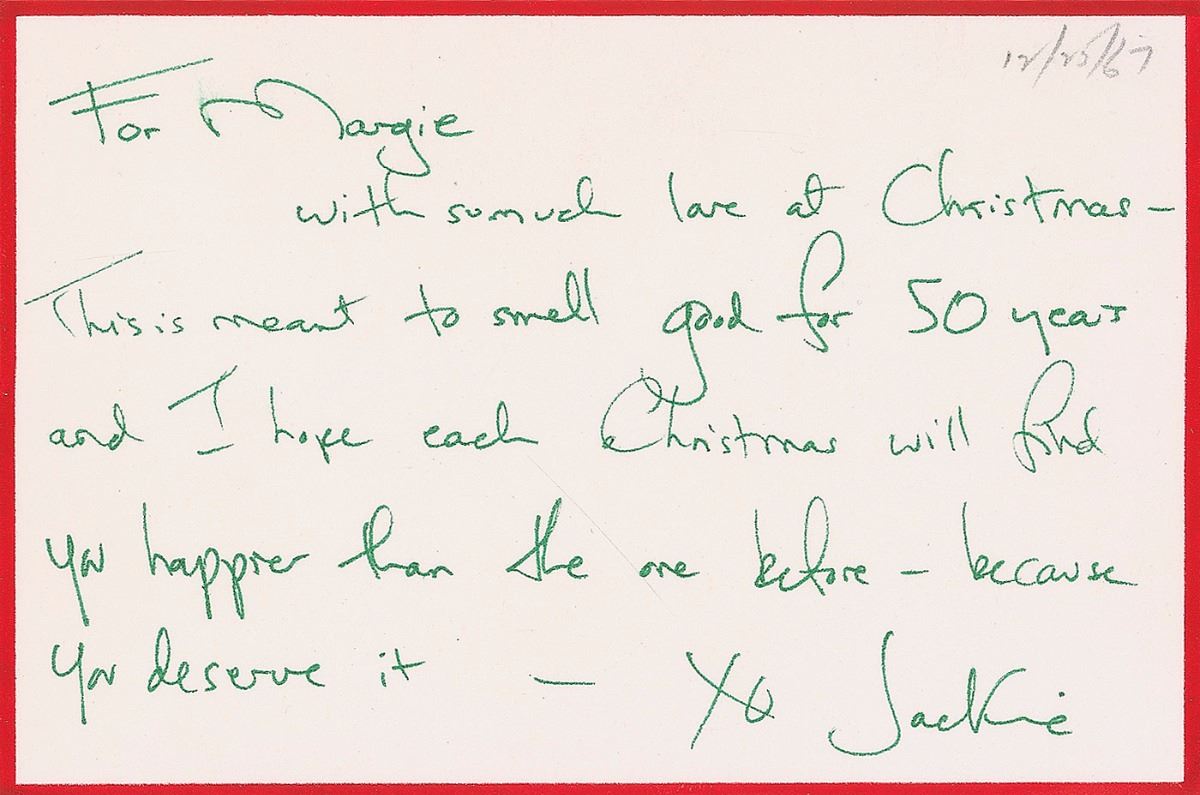 12/25/67
For Margie
with so much love at Christmas –
This is meant to smell good for 50 years
and I hope each Christmas will find
you happier than the one before – because
you deserve it — XO Jackie